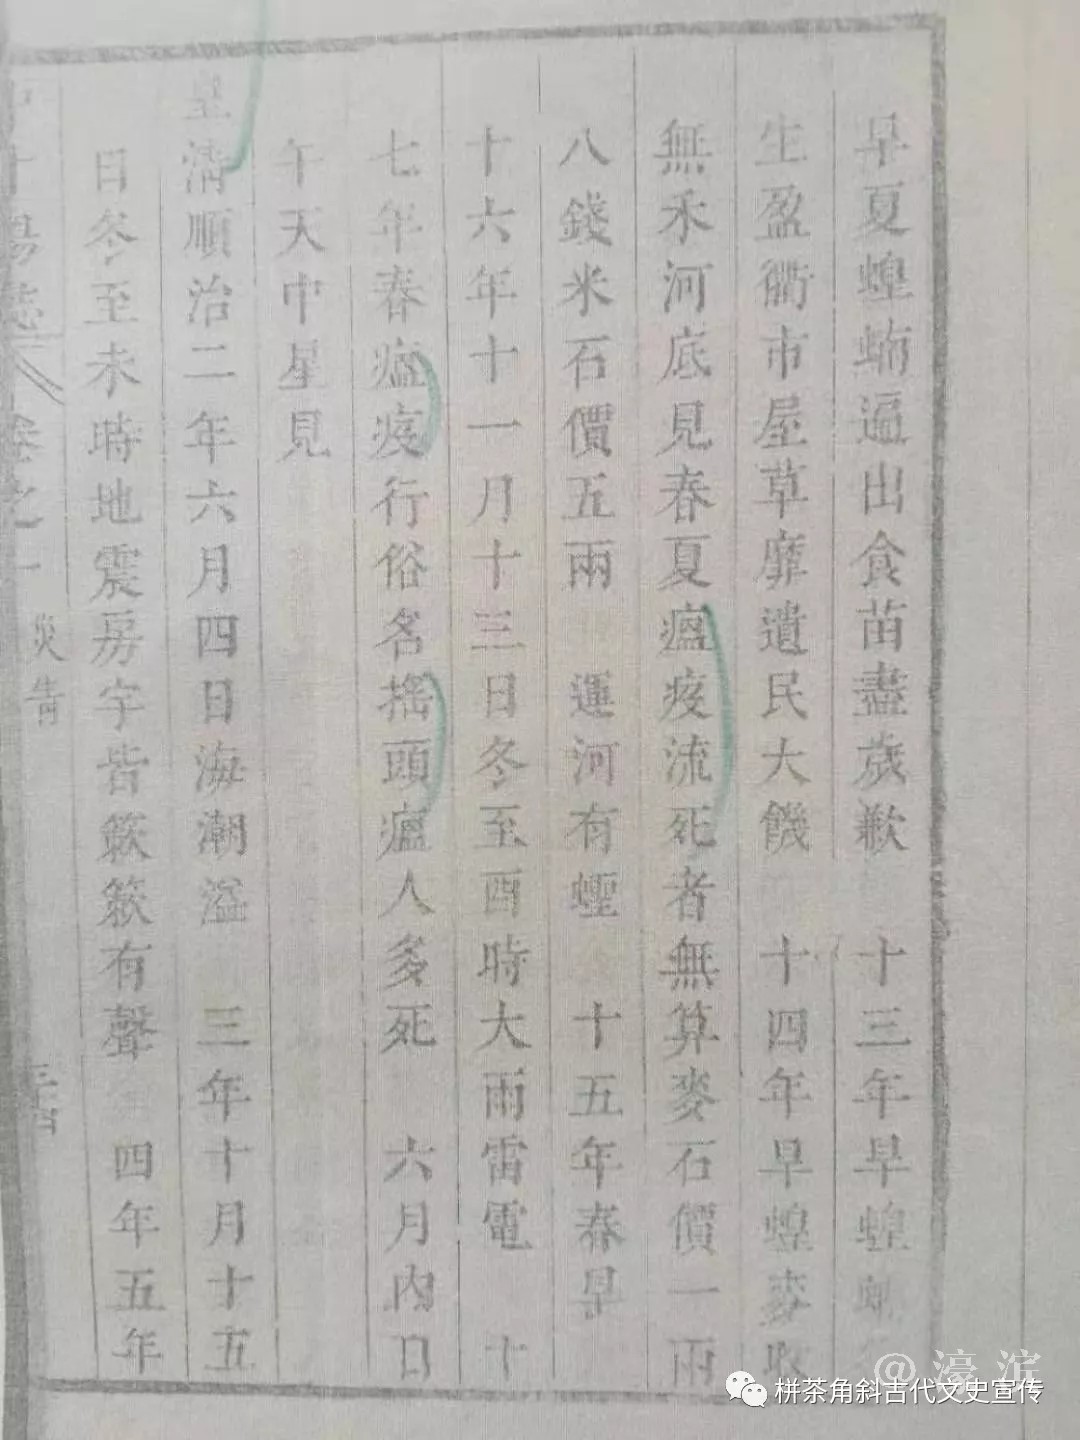 旱夏蝗蝻逼出食苗盡歲歉 十三年旱蝗蝻
生盈衢市屋草靡遺民大饑 十四年旱蝗麥
無禾河底見春夏瘟疫流死者無算麥石價一兩
八錢米石價五兩 運河有蝗 十五年春旱
十六年十一月十三日冬至酉時大雨雷電 十
七年春瘟疫行俗名搖頭瘟人多死 六月內日
午天中星見
皇清順治二年六月四日海潮溢 三年十月十五
日冬至未時地震房宇皆簌簌有聲 四年五年
十場志 卷之一 災眚
@濠滨
栟茶角斜古代文史宣传